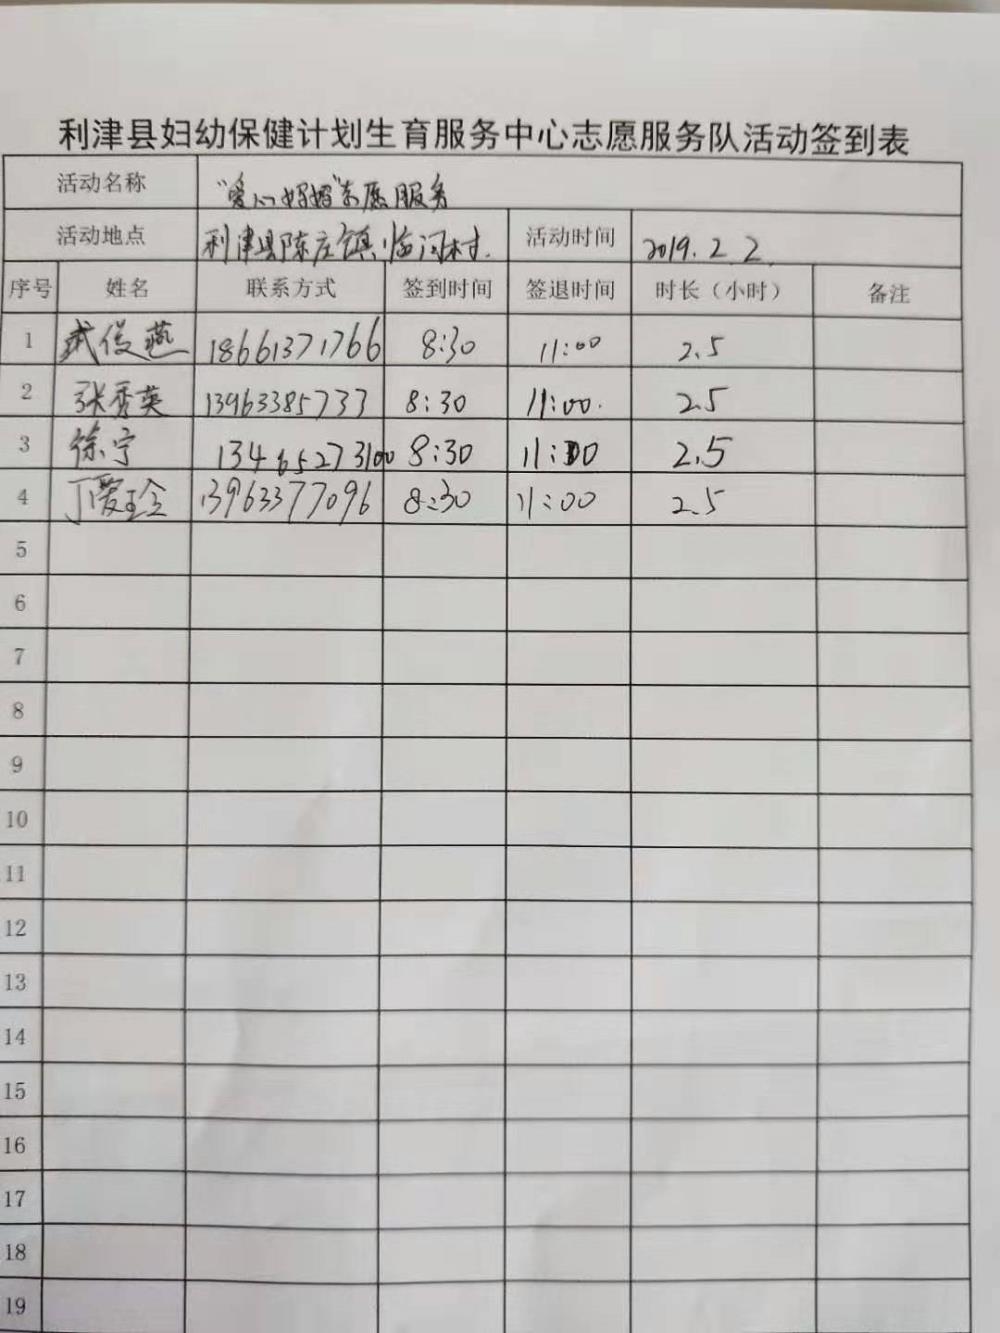 利津县妇幼保健计划生育服务中心志愿服务队活动签到表
活动名称 "爱心妈妈"志愿服务
活动地点 利津县陈庄镇临河村. 活动时间 2019.2.2.
序号 姓名 联系方式 签到时间 签退时间 时长（小时） 备注
1 武俊燕 18661371766 8:30 11:00 2.5
2 张秀英 13963385733 8:30 11:00. 2.5
3 徐宁 13465273100 8:30 11:00 2.5
4 丁爱玲 13963377096 8:30 11:00 2.5
5
6
7
8
9
10
11
12
13
14
15
16
17
18
19